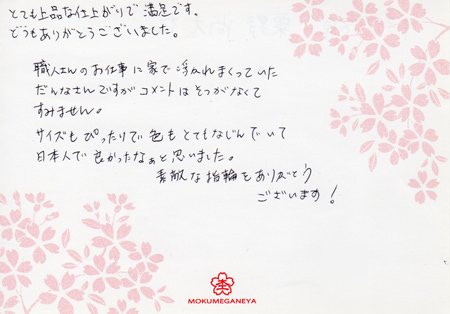 とても上品な仕上がりで満足です。
どうもありがとうございました。
職人さんのお仕事に家で浮かれまくっていた
だんなさんですがコメントはそっがなくて
すみません。
サイズもぴったりで色もとてもなじんでいて
日本人で良かったなぁと思いました。
素敵な指輪をありがとう
ございます!
MOKUMEGANEYA